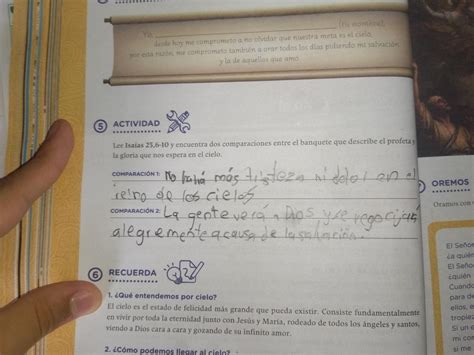 Yo, (tu nombre),
desde hoy me comprometo a no olvidar que nuestra meta es el cielo,
por esta razón, me comprometo también a orar todos los días pidiendo mi salvación
y la de aquellos que amo.
5 ACTIVIDAD
Lee Isaías 25,6-10 y encuentra dos comparaciones entre el banquete que describe el profeta y
la gloria que nos espera en el cielo.
COMPARACIÓN 1: No habrá más tristeza ni dolor en el
reino de los cielos
COMPARACIÓN 2: La gente verá a Dios y se regocijará
alegremente a causa de la salvación.
6 RECUERDA
1. ¿Qué entendemos por cielo?
El cielo es el estado de felicidad más grande que pueda existir. Consiste fundamentalmente
en vivir por toda la eternidad junto con Jesús y María, rodeado de todos los ángeles y santos,
viendo a Dios cara a cara y gozando de su infinito amor.
2. ¿Cómo podemos llegar al cielo?
OREMOS
Oramos con
El Señor
¿a quién
El Seño
¿quién
Cuando
para
ellos, e
tropie
Si un e
mi co
si me